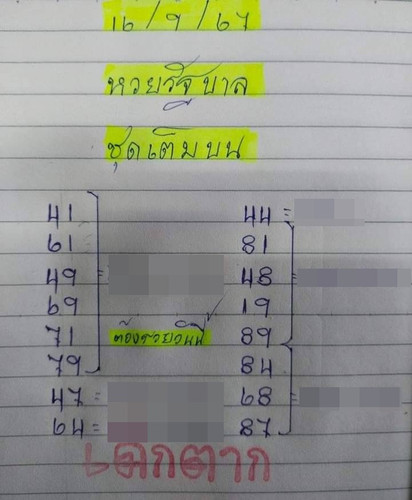 16/9/67
หวยรัฐบาล
ชุดเต็มบน
41 44 =
61 81
49 = 48 =
69 19
71 ต้องรวยวันนี้ 89
79 84
47 = 68 =
64 = 87
เดกตาก